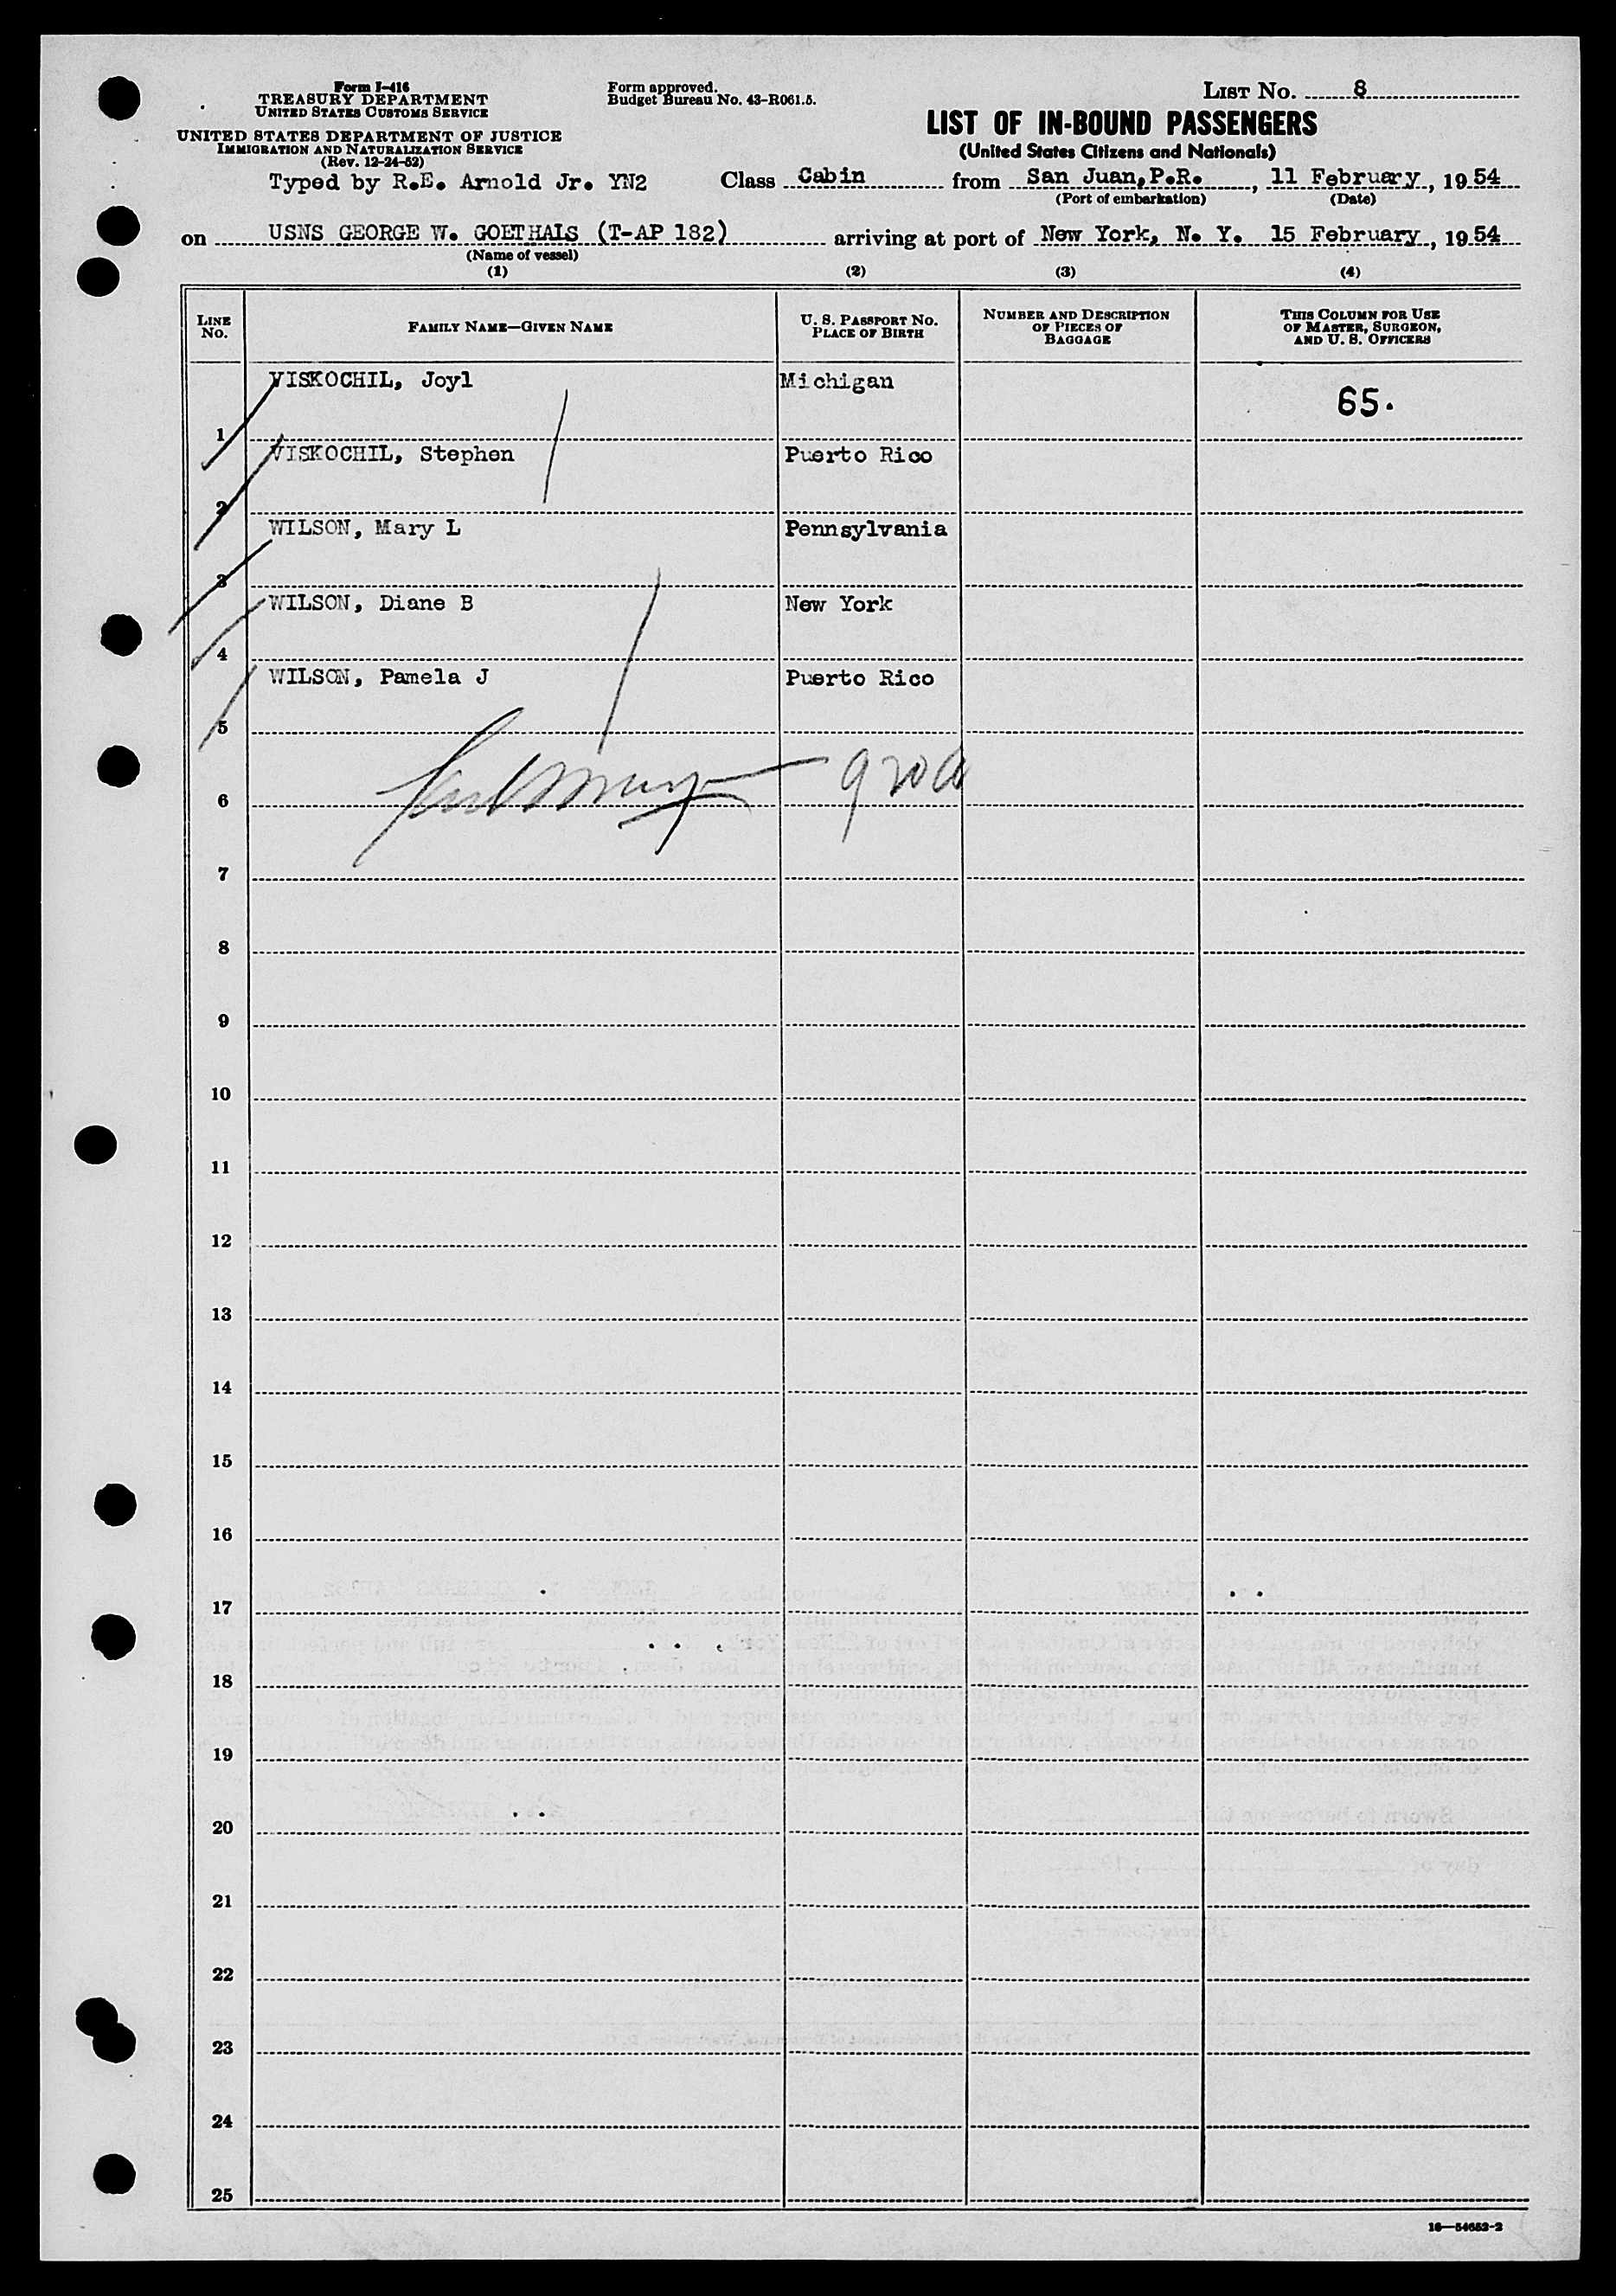 Form I-416
TREASURY DEPARTMENT
UNITED STATES CUSTOMS SERVICE
UNITED STATES DEPARTMENT OF JUSTICE
IMMIGRATION AND NATURALIZATION SERVICE
(Rev. 12-24-52)
Form approved.
Budget Bureau No. 43-R061.5.
LIST No. 8
LIST OF IN-BOUND PASSENGERS
(United States Citizens and Nationals)
Typed by R.E. Arnold Jr. YN2 Class Cabin from San Juan,P.R., 11 February, 1954
(Port of embarkation) (Date)
on USNS GEORGE W. GOETHALS (T-AP 182) arriving at port of New York, N. Y. 15 February, 1954
(Name of vessel)
(1) (2) (3) (4)
LINE No. FAMILY NAME—GIVEN NAME U. S. PASSPORT No. PLACE OF BIRTH NUMBER AND DESCRIPTION OF PIECES OF BAGGAGE THIS COLUMN FOR USE OF MASTER, SURGEON, AND U. S. OFFICERS
VISKOCHIL, Joyl Michigan
65.
1
VISKOCHIL, Stephen Puerto Rico
2
WILSON, Mary L Pennsylvania
3
WILSON, Diane B New York
4
WILSON, Pamela J Puerto Rico
5
6
7
8
9
10
11
12
13
14
15
16
17
18
19
20
21
22
23
24
25
16—54652-2